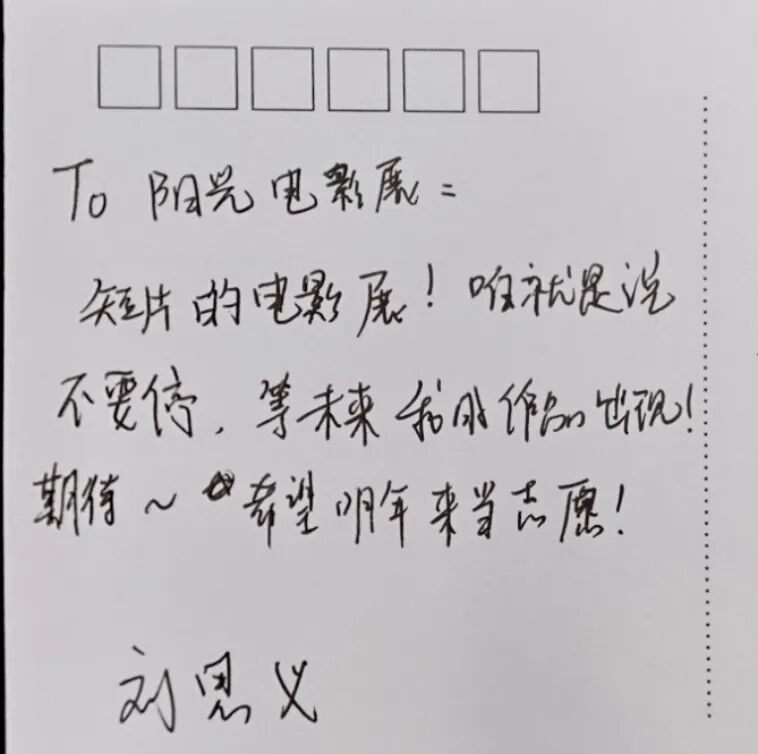 To 阳光电影展：
短片的电影展！咱就是说
不要停，等未来我的作品出现！
期待～希望明年来当志愿！
刘思义